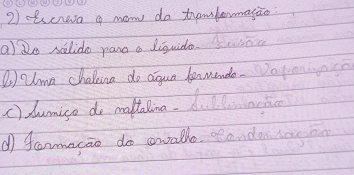 2) Escreva o nome da transformação
a) Do sólido para o líquido. Fusão
b) Uma chaleira de água fervendo. Vaporização
c) Sumiço de naftalina - Sublimação
d) Formação do orvalho. Condensação